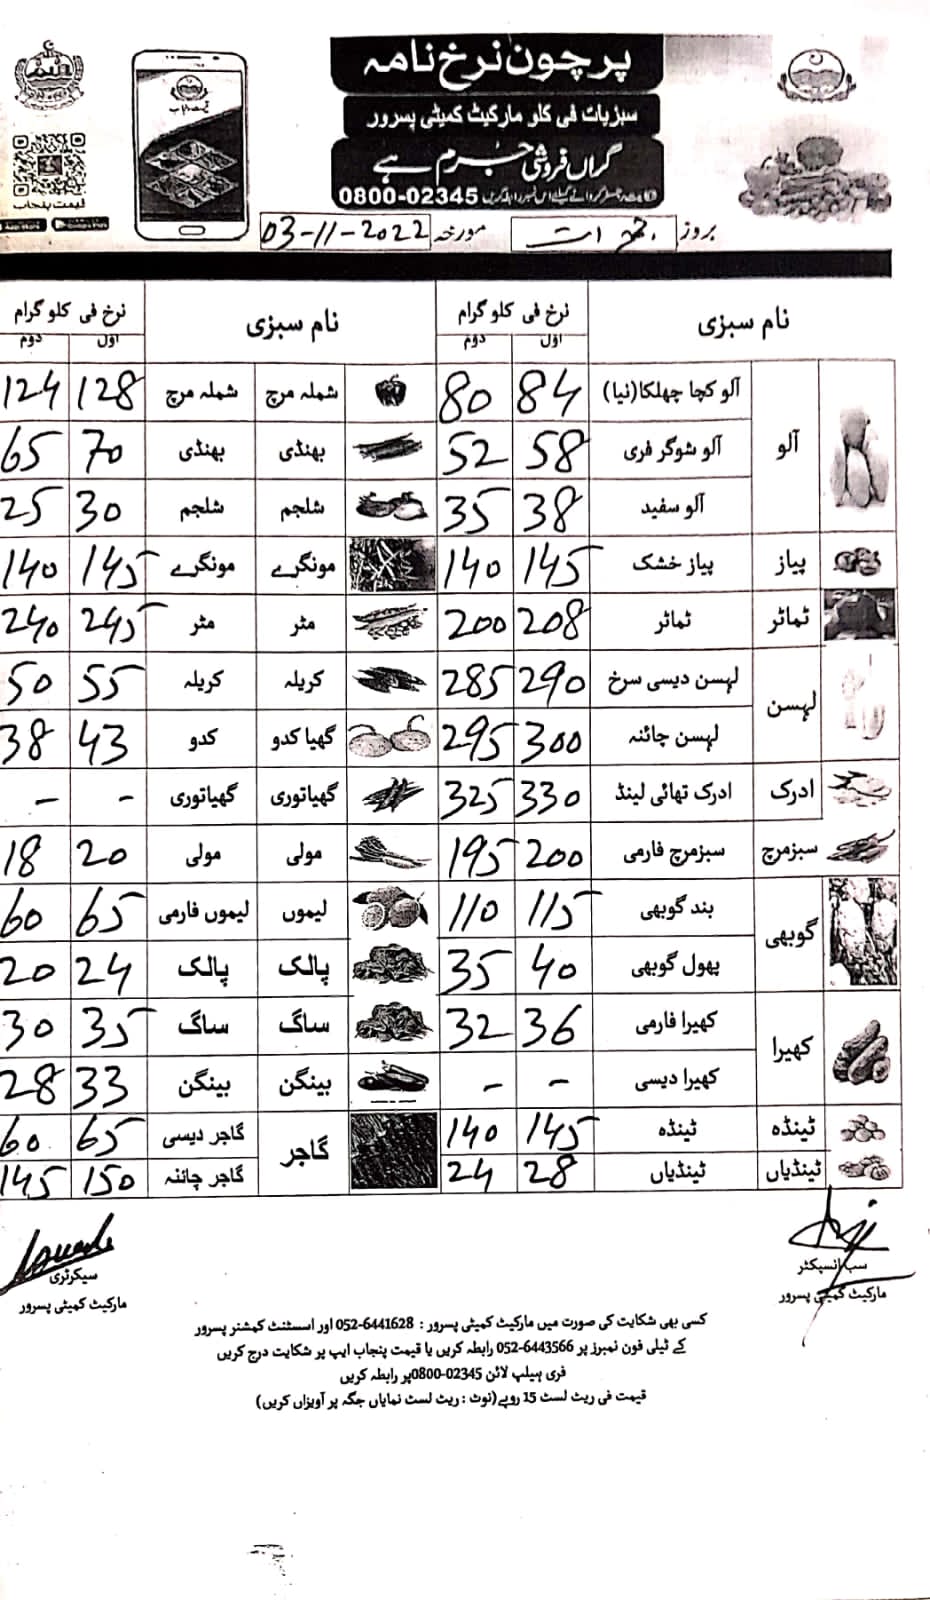 پرچون نرخ نامہ
سبزیات فی کلو مارکیٹ کمیٹی پسرور
گراں فروشی جرم ہے
0800-02345
قیمت پنجاب
بروز جمعرات مورخہ 03-11-2022
نام سبزی نرخ فی کلو گرام نام سبزی نرخ فی کلو گرام
اول دوم اول دوم
آلو آلو کچا چھلکا(نیا) 84 80 شملہ مرچ شملہ مرچ 128 124
آلو شوگر فری 58 52 بھنڈی بھنڈی 70 65
آلو سفید 38 35 شلجم شلجم 30 25
پیاز پیاز خشک 145 140 مونگرے مونگرے 145 140
ٹماٹر ٹماٹر 208 200 مٹر مٹر 245 240
لہسن لہسن دیسی سرخ 290 285 کریلہ کریلہ 55 50
لہسن چائنہ 300 295 گھیا کدو کدو 43 38
ادرک ادرک تھائی لینڈ 330 325 گھیاتوری گھیاتوری - -
سبزمرچ سبزمرچ فارمی 200 195 مولی مولی 20 18
گوبھی بند گوبھی 115 110 لیموں لیموں فارمی 65 60
پھول گوبھی 40 35 پالک پالک 24 20
کھیرا کھیرا فارمی 36 32 ساگ ساگ 35 30
کھیرا دیسی - - بینگن بینگن 33 28
ٹینڈہ ٹینڈہ 145 140 گاجر گاجر دیسی 65 60
ٹینڈیاں ٹینڈیاں 28 24 گاجر چائنہ 150 145
سب انسپکٹر
مارکیٹ کمیٹی پسرور
سیکرٹری
مارکیٹ کمیٹی پسرور
کسی بھی شکایت کی صورت میں مارکیٹ کمیٹی پسرور : 052-6441628 اور اسسٹنٹ کمشنر پسرور
کے ٹیلی فون نمبرز پر 052-6443566 رابطہ کریں یا قیمت پنجاب ایپ پر شکایت درج کریں
فری ہیلپ لائن 02345-0800پر رابطہ کریں
قیمت فی ریٹ لسٹ 15 روپے(نوٹ : ریٹ لسٹ نمایاں جگہ پر آویزاں کریں)